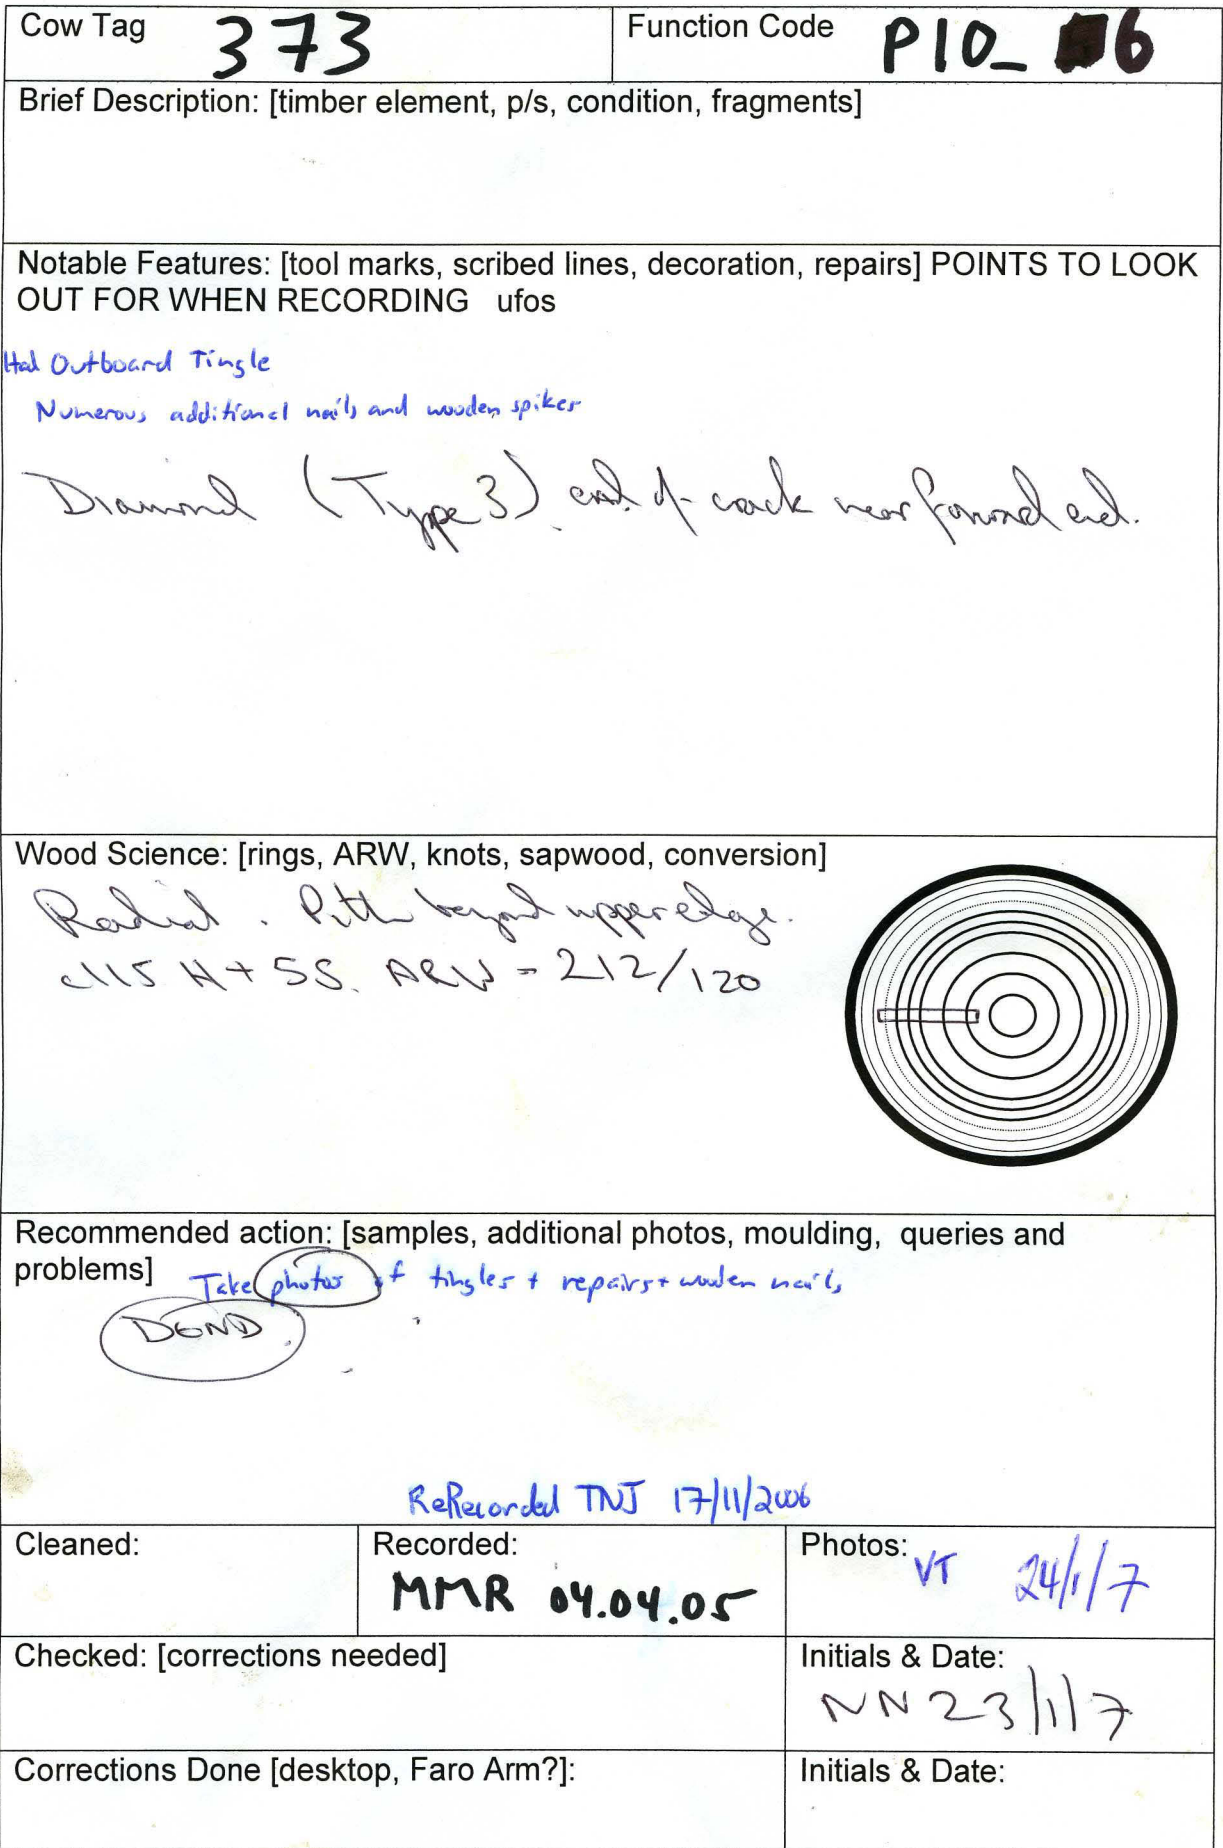 Cow Tag 373 Function Code P10_ 6
Brief Description: [timber element, p/s, condition, fragments]
Notable Features: [tool marks, scribed lines, decoration, repairs] POINTS TO LOOK
OUT FOR WHEN RECORDING ufos
Had Outboard Tingle
Numerous additional nails and wooden spikes
Diamond (Type 3) end of crack near forward end.
Wood Science: [rings, ARW, knots, sapwood, conversion]
Radial. Pith beyond upper edge.
c115 H + 5S. ARW = 212/120
Recommended action: [samples, additional photos, moulding, queries and
problems] Take photos of tingles + repairs + wooden nails
DGND
ReRecorded TNJ 17/11/2006
Cleaned: Recorded: Photos:
MMR 04.04.05 VT 24/1/7
Checked: [corrections needed] Initials & Date:
NN 23/1/7
Corrections Done [desktop, Faro Arm?]: Initials & Date: